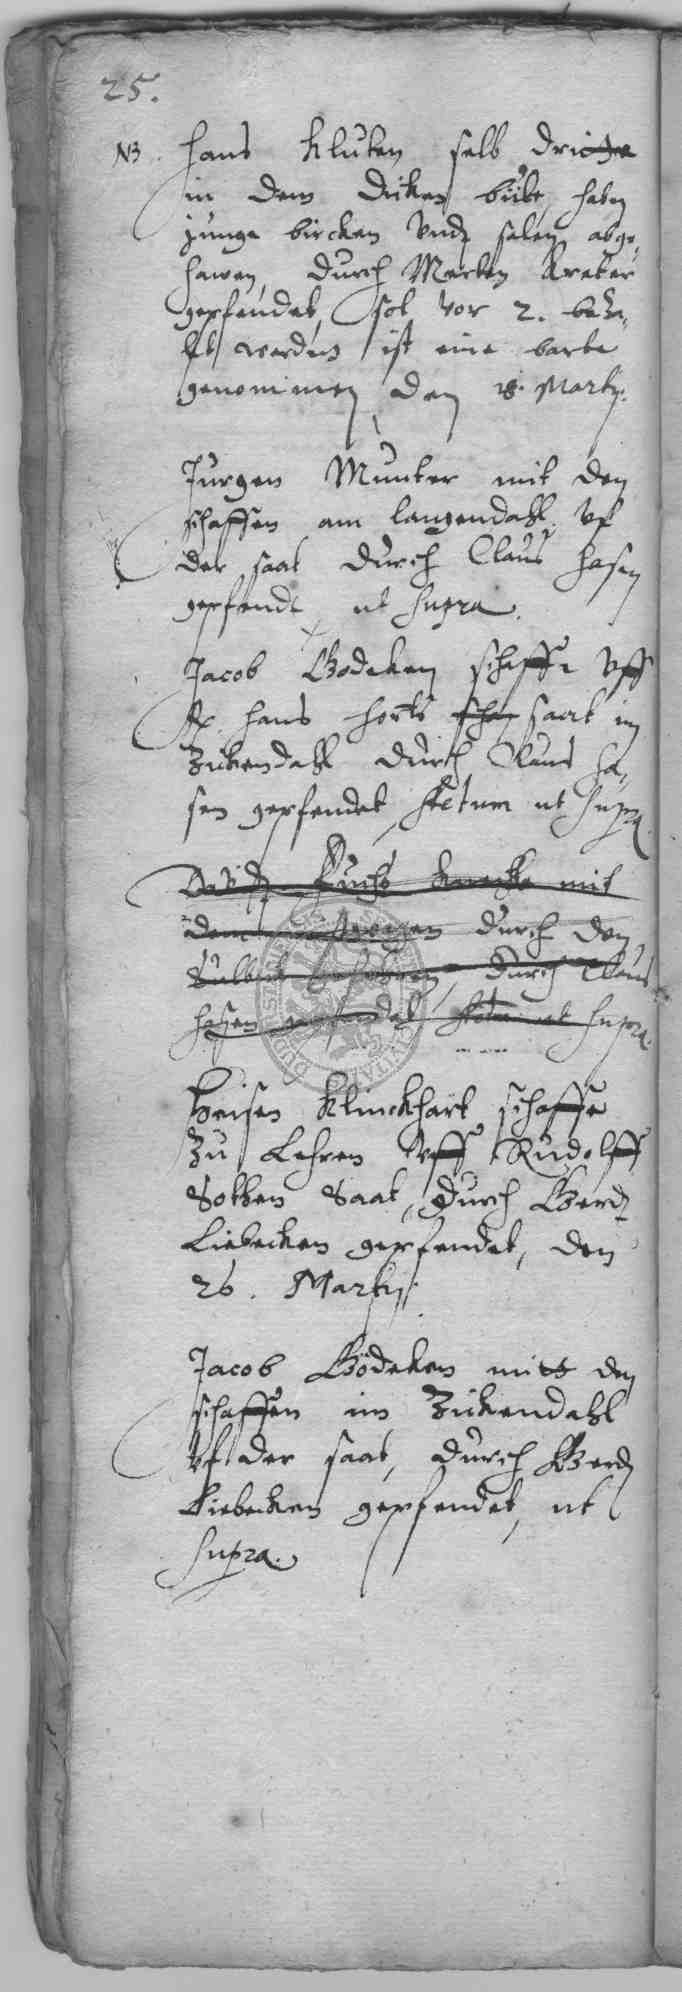 25.
NB. Hans Kluken selb dritte
in dem dicken büke, haben
junge bircken Undt salen abge,
hawen, durch Merten Kreter
gepfendet, sol vor 2. beza,
lt werden ist eine barte
genommen, den 18. Martij.
Jürgen Munter mit den
schaffen am langendahl Uf
der saat durch Claus Hasen
gepfendt ut supra.
Jacob Gödeken schaffe Uff
Hans Horts scha saat im
Zickendahl durch Claus Ha,
sen gepfendet, Actum ut supra
Fuchs Knecht mit
dem durch den
durch Claus
Hasen gepfendet Actum ut supra.
Heisen Klinckhart schaffe
Zu Lehren Uff Rudolff
Bothen Saat, durch Gerdt
Liebecken gepfendet, den
26. Martij.
Jacob Gödeken mitt den
schaffen im Zickendahl
Uf der saat, durch Gerdt
Liebecken gepfendet, ut
supra.